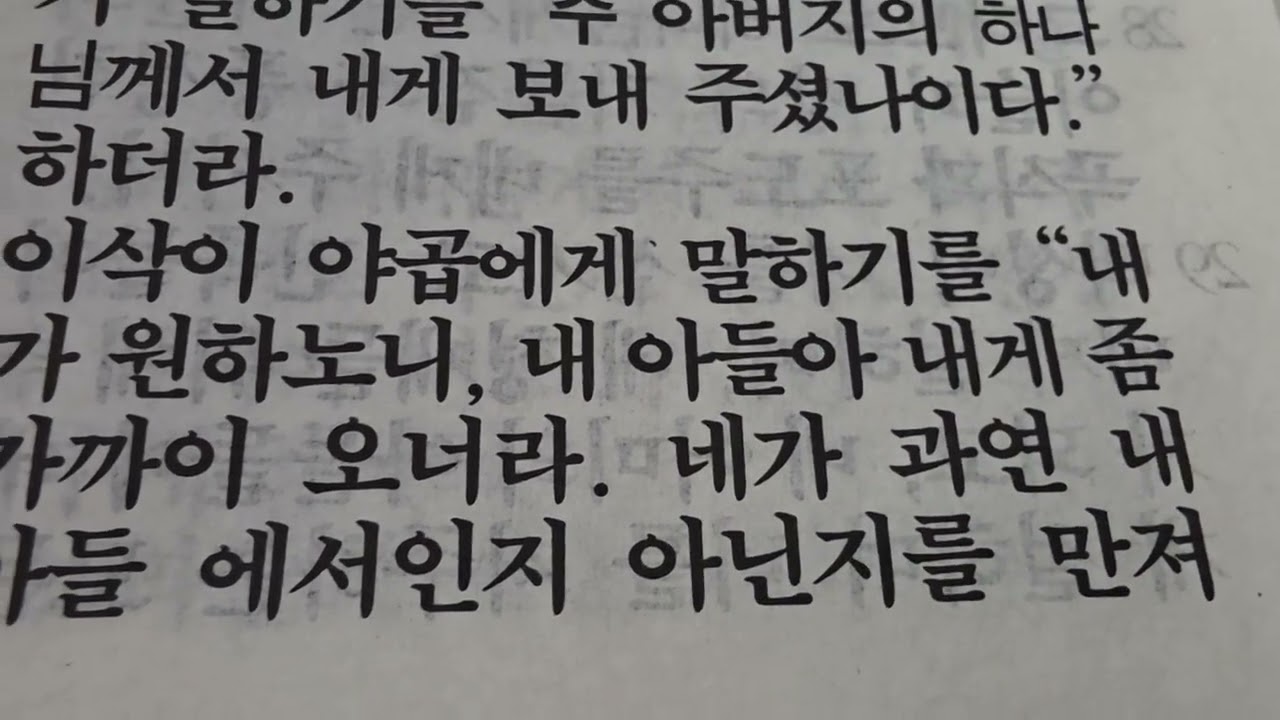 가 말하기를 “주 아버지의 하나
님께서 내게 보내 주셨나이다.”
하더라.
이삭이 야곱에게 말하기를 “내
가 원하노니, 내 아들아 내게 좀
가까이 오너라. 네가 과연 내
아들 에서인지 아닌지를 만져